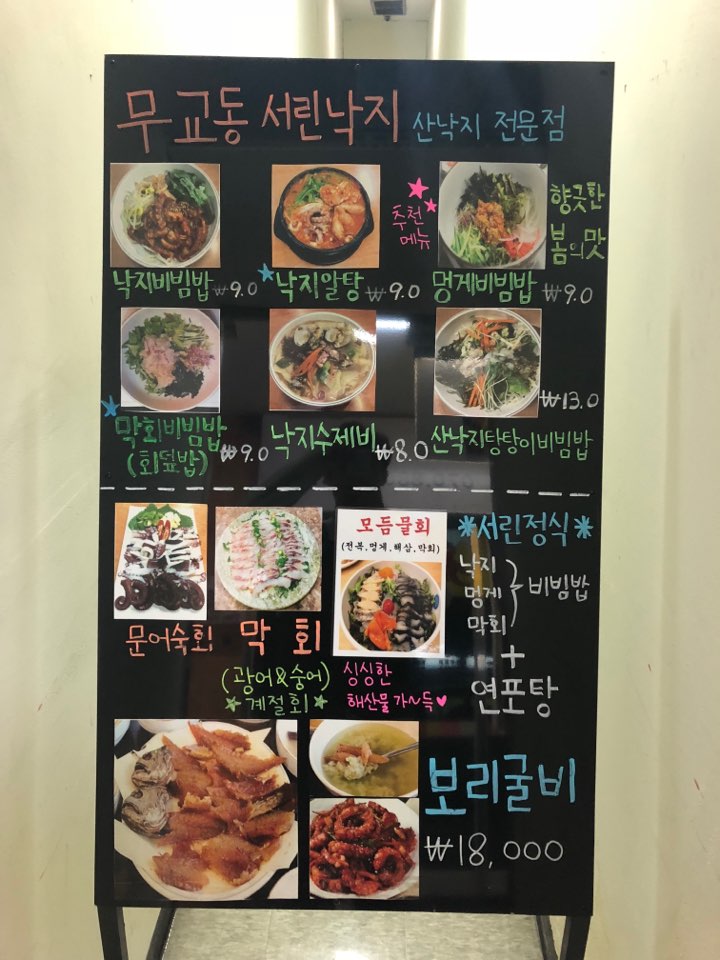 무교동 서린낙지 산낙지 전문점
추천
메뉴
향긋한
봄의맛
낙지비빔밥 ₩9.0
낙지알탕 ₩9.0
멍게비빔밥 ₩9.0
막회비빔밥
(회덮밥) ₩9.0
낙지수제비 ₩8.0
₩13.0
산낙지탕탕이비빔밥
모듬물회
(전복.멍게.해삼.막회)
*서린정식*
낙지
멍게
막회
비빔밥
+
연포탕
문어숙회
막회
(광어&숭어)
계절회
싱싱한
해산물 가~득♥
보리굴비
₩18,000